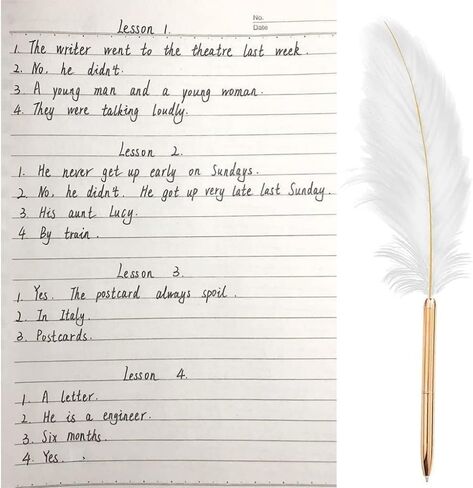 No.
Date
Lesson 1.
1. The writer went to the theatre last week.
2. No, he didn't.
3. A young man and a young woman.
4. They were talking loudly.
Lesson 2.
1. He never get up early on Sundays.
2. No, he didn't. He got up very late last Sunday.
3. His aunt Lucy.
4 By train.
Lesson 3.
1. Yes. The postcard always spoil.
2. In Italy.
3. Postcards.
Lesson 4.
1. A letter.
2. He is a engineer.
3. Six months.
4. Yes.